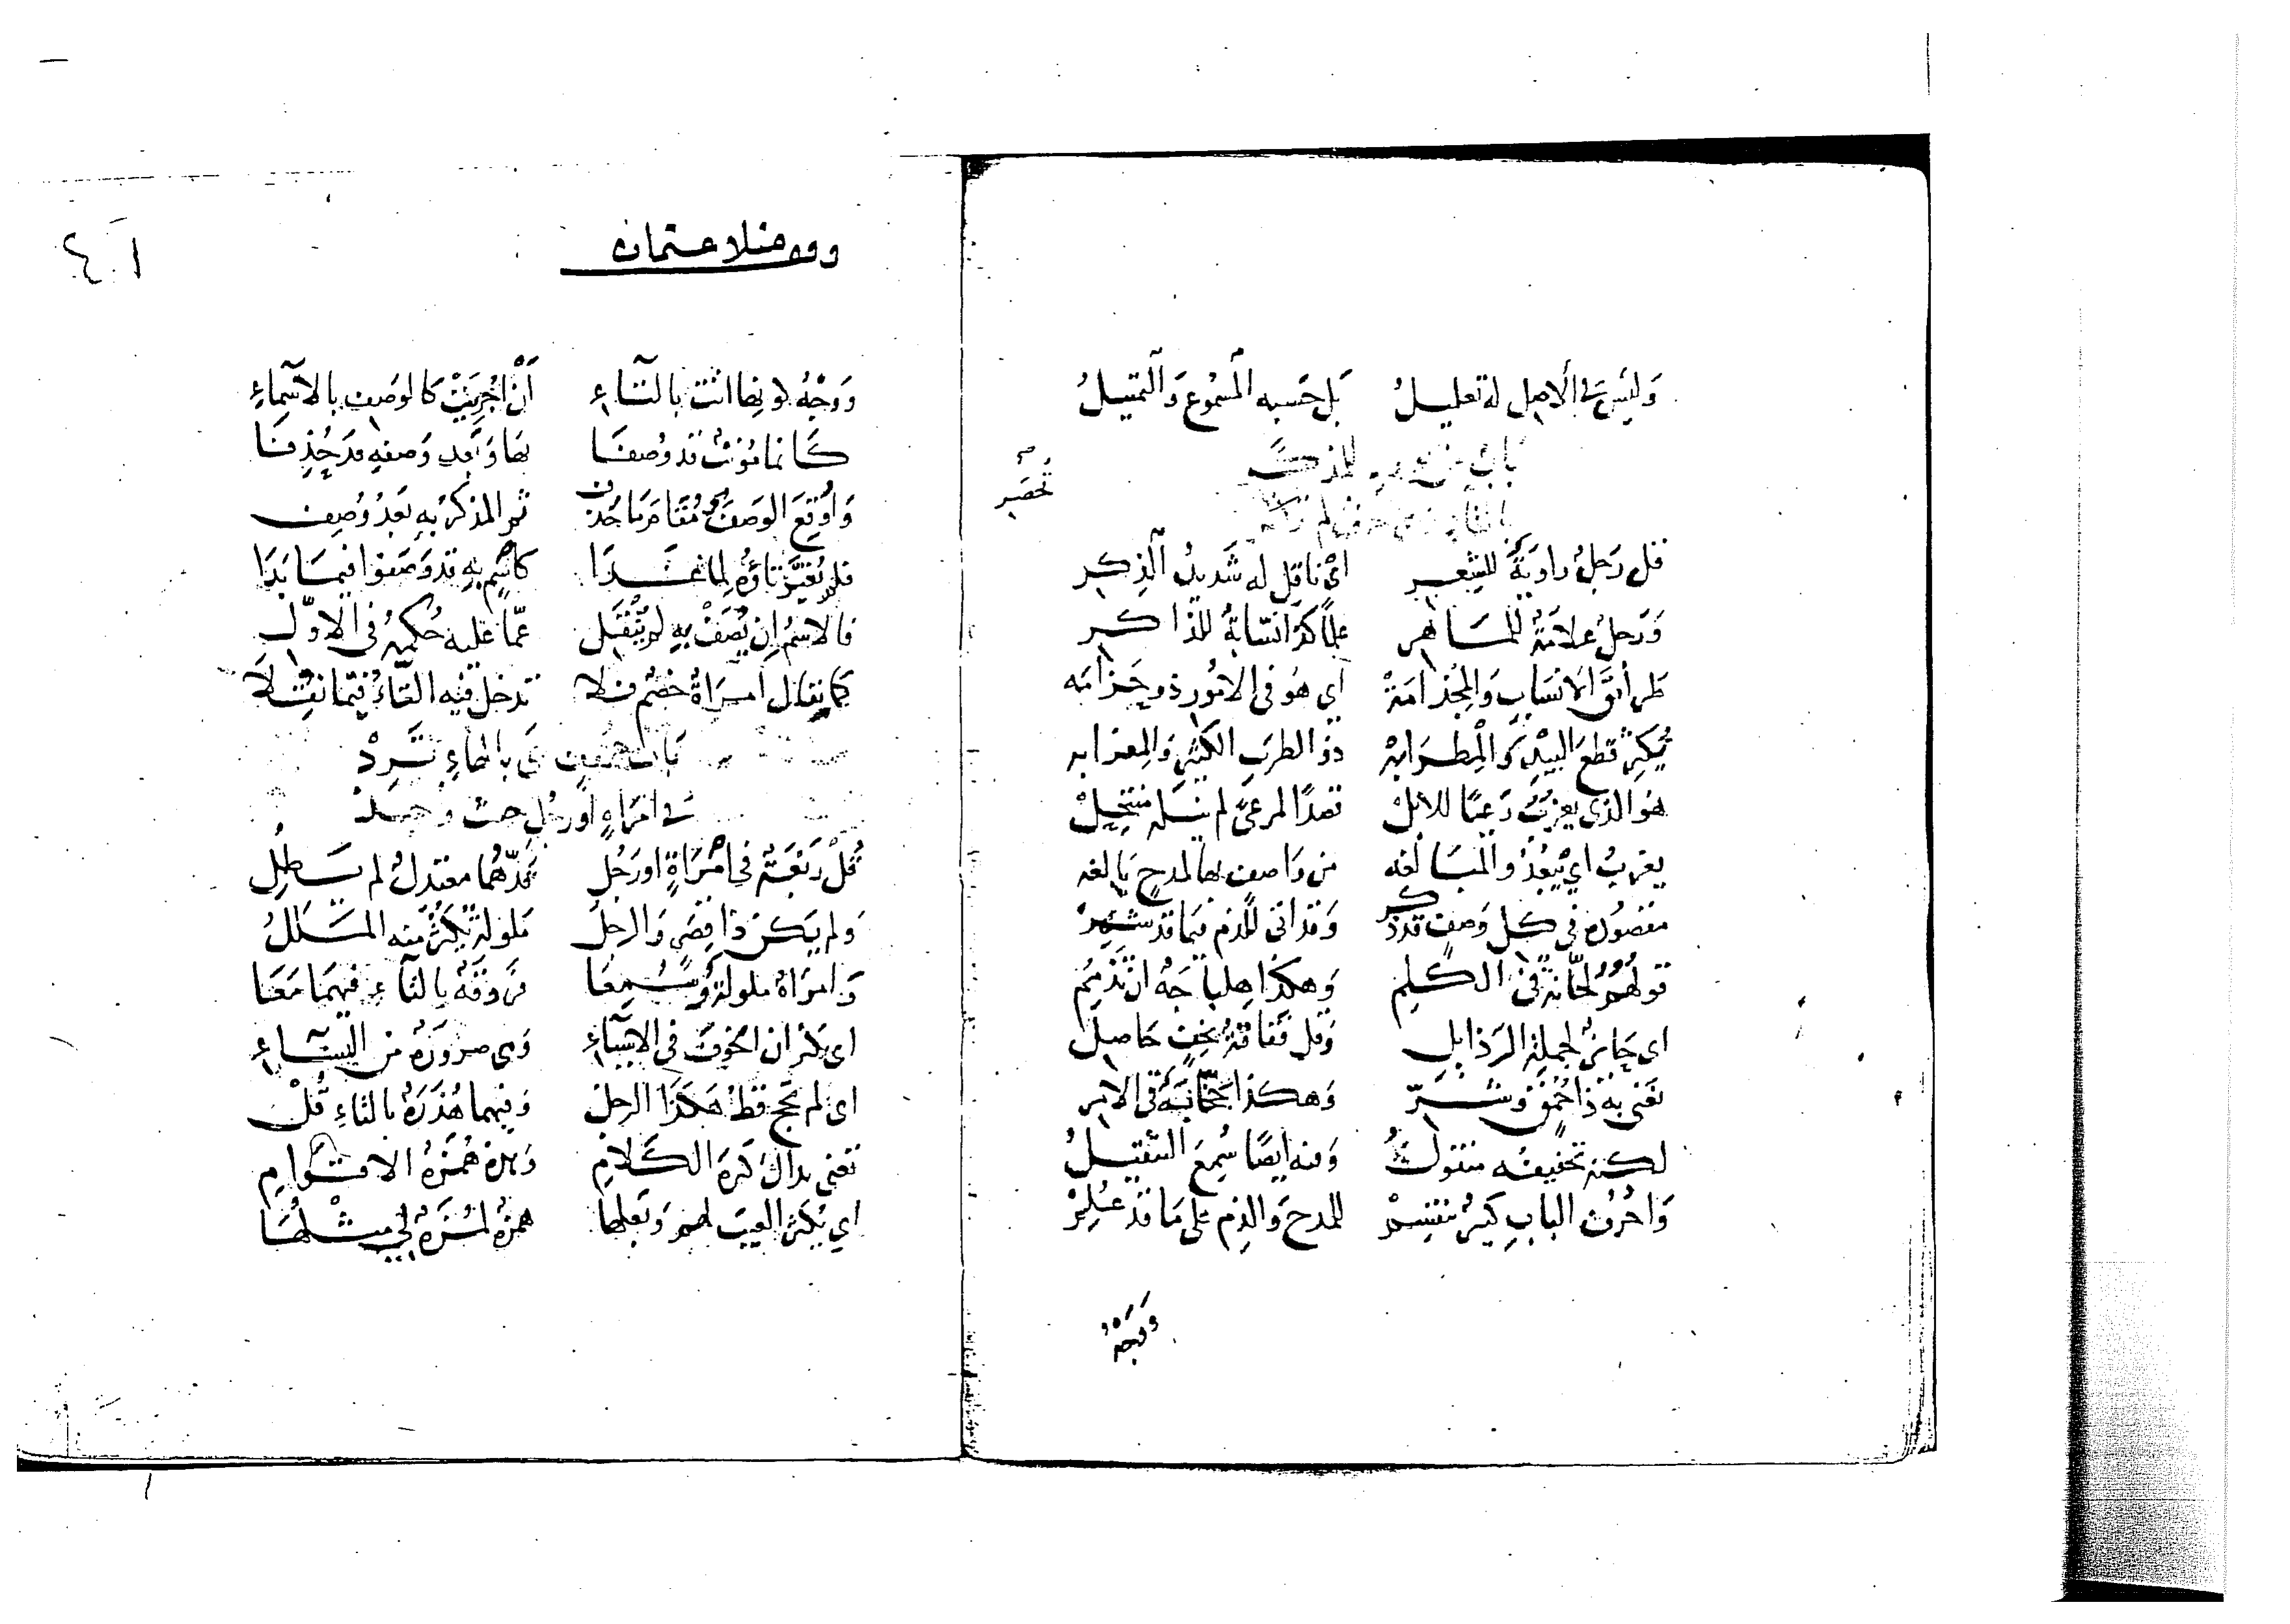 وَلَيسَ فِي الأصل له تعليلُ بَل حَسبه المسْمُوع وَالتمثيلُ
بَابُ من للمذكر
قل رَجلٌ راويَةٌ للشعر أيْ ناقل له شديدُ الذكر
وَرَجلٌ علامَةٌ للماهر علمًا كذا نسّابةٌ للذاكر
طرائقَ الأنسَابِ وَالمِجْذامَهْ أي هوَ في الأمور ذو جَذامَه
يُكثِر قطعَ البيْدِ وَالمِطرَابهْ ذو الطرَبِ الكثيرِ وَالمِعزابه
هوَ الذي يعزبُ رَعيًا للابلْ قصدًا لمرعىً لم ينله منتحلْ
يعزبُ أي يَبْعُدُ وَالمبَالغه من وَاصف بها لمدحٍ بالغه
مقصُودة في كل وَصفٍ قد ذكر وَقد أتى للذم فيما قد شهر
قولهُمُ لحّانةٌ في الكلِمِ وَهكذا هِلباجَةٌ ان تذمم
اي جَائزٌ لجملة الرذايل وَقل فقاقةٌ بخفٍ حَاصل
تعني به ذا حُمُقٍ وَشرِّ وَهكذا جخّابَةٌ في الأمر
لكنه تخفيفه منقولُ وَفيه أيضًا سُمِعَ التثقيلُ
وَأحرُف البابِ كثيرٌ تنقسِمْ للمدح وَالذم على مَا قد عُلِمْ
وَوَجْهُ
منلا عثمان
وَوَجْهُ لونها أنثت بالتاءِ أنْ أُجْرِيَتْ كالوَصف بالأسماءِ
كأنما مُؤنث قد وُصفَا بهَا وَبَعد وَصفه قد حُذِفَا
وَأُوقِعَ الوَصفُ مُقامَ مَا حُذف ثم المذكرُ به بَعدُ وُصِف
فلم تُغيَّر تاؤه لما غدَا كاسْمٍ به قد وَصَفوا فيما بَدَا
فالاسْمُ إن يُصَفْ به لم يُنْقَلِ عمّا عليه حُكمهُ في الأوّل
كما يقال امرَأةٌ خصْم فلا تدخل فيه التاءُ فيمَا نقِلاَ
بَاب بالهاءِ ترِدْ
في امرَاةٍ أو رَجُلٍ حيث وجد
قُلْ رَبْعَةٌ في امرَاةٍ أو رَجُلِ قدّهُما معتدلٌ لم يَطُلِ
وَلم يَكن ذا قِصَرٍ وَالرجل مَلولةٌ يكثر منه المَلَلُ
وَامرَأة ملولةٌ وَسُمِعَا فَروقةٌ بالتاءِ فيهمَا مَعَا
اي يَكثر ان الخوفُ في الأشياءِ وَهي صرُورةٌ من النسَاءِ
اي لم تحج قط هَكذا الرجل وَفيهما هُذَرَةٌ بالتاء قُلْ
تعني بذاك كثرة الكلامِ وَهذه هُمَزَةُ الأقوامِ
أي يُكثر العيبَ لهم وَبَعلها همزة لُمَزَةٌ في مثلهَا